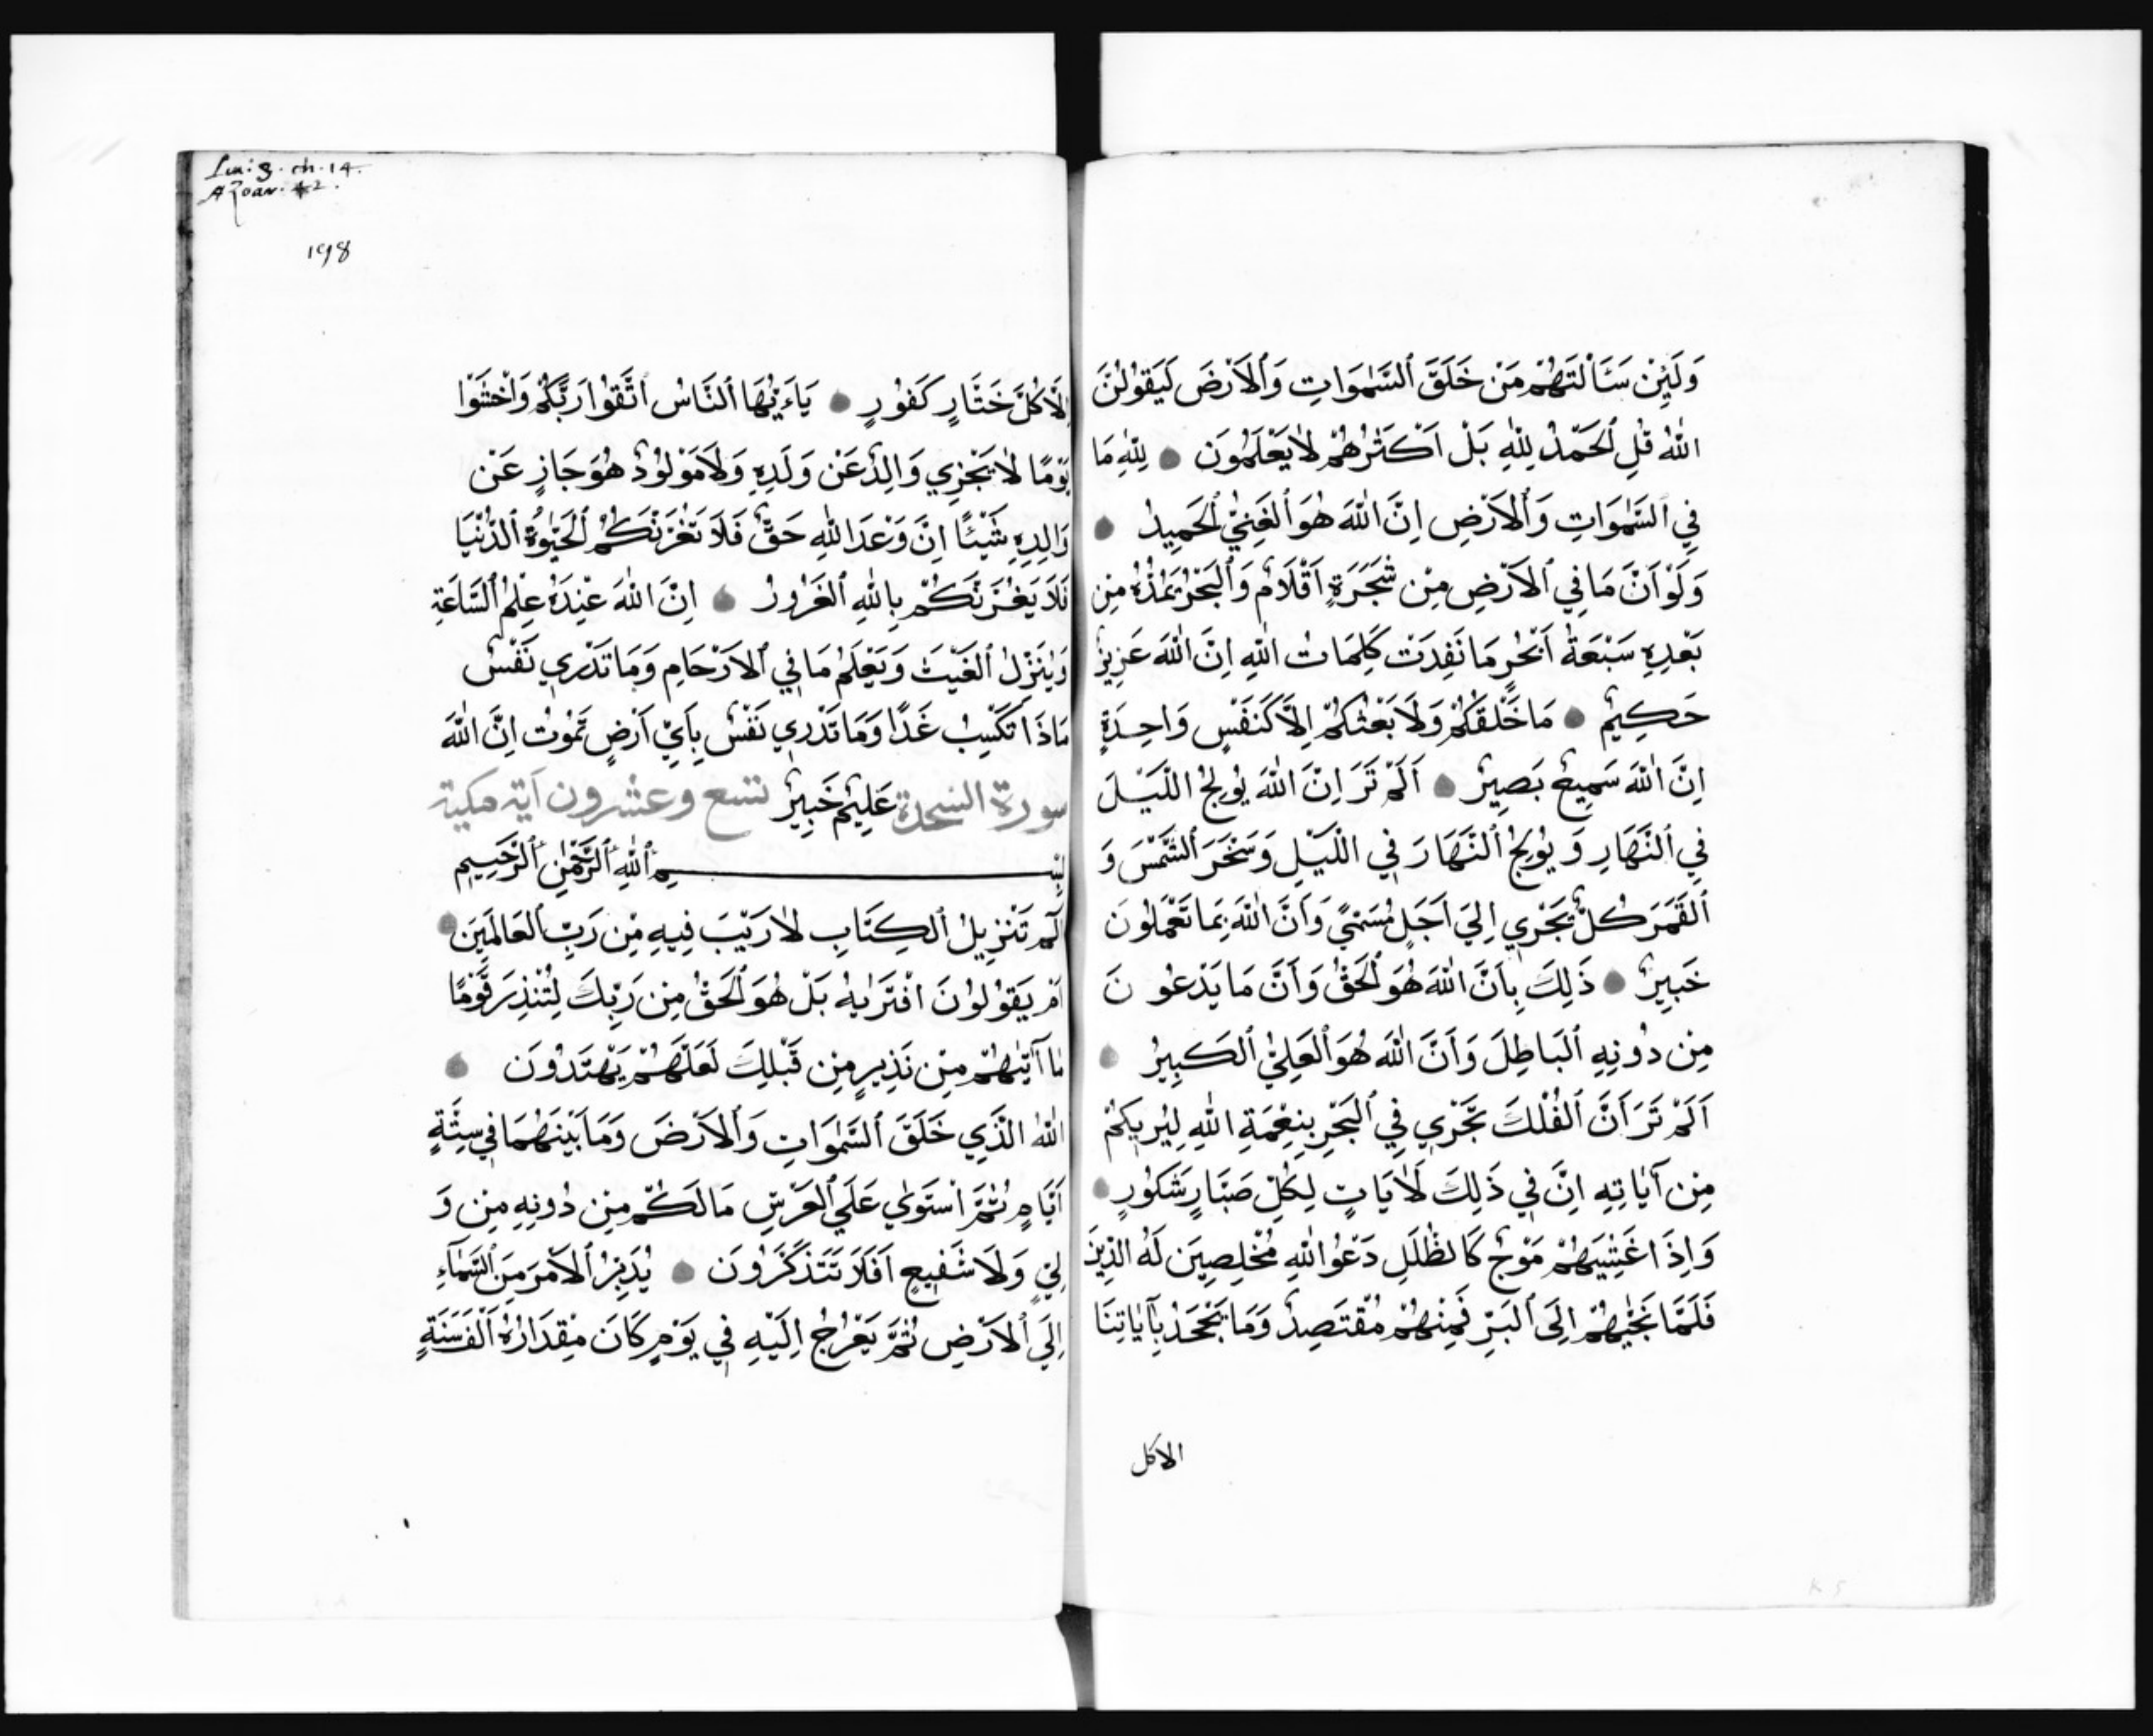 وَلَئِنْ سَأَلْتَهُمْ مَنْ خَلَقَ ٱلسَّمٰوَاتِ وَٱلْاَرْضَ لَيَقُولُنَّ
اللّٰهُ قُلِ ٱلْحَمْدُ لِلّٰهِ بَلْ اَكْثَرُهُمْ لَا يَعْلَمُونَ ● لِلّٰهِ مَا
فِي ٱلسَّمٰوَاتِ وَٱلْاَرْضِ اِنَّ اللّٰهَ هُوَ ٱلْغَنِيُّ ٱلْحَمِيدُ ●
وَلَوْ اَنَّ مَا فِي ٱلْاَرْضِ مِنْ شَجَرَةٍ اَقْلَامٌ وَٱلْبَحْرُ يَمُدُّهُ مِنْ
بَعْدِهِ سَبْعَةُ اَبْحُرٍ مَا نَفِدَتْ كَلِمَاتُ اللّٰهِ اِنَّ اللّٰهَ عَزِيزٌ
حَكِيمٌ ● مَا خَلْقُكُمْ وَلَا بَعْثُكُمْ اِلَّا كَنَفْسٍ وَاحِدَةٍ
اِنَّ اللّٰهَ سَمِيعٌ بَصِيرٌ ● اَلَمْ تَرَ اِنَّ اللّٰهَ يُولِجُ اللَّيْلَ
فِي ٱلنَّهَارِ وَيُولِجُ ٱلنَّهَارَ فِي اللَّيْلِ وَسَخَّرَ ٱلشَّمْسَ وَ
ٱلْقَمَرَ كُلٌّ يَجْرِي اِلَيٰ اَجَلٍ مُسَمًّي وَاَنَّ اللّٰهَ بِمَا تَعْمَلُونَ
خَبِيرٌ ● ذَلِكَ بِاَنَّ اللّٰهَ هُوَ ٱلْحَقُّ وَاَنَّ مَا يَدْعُونَ
مِنْ دُونِهِ ٱلْبَاطِلَ وَاَنَّ اللّٰهَ هُوَ ٱلْعَلِيُّ ٱلْكَبِيرُ ●
اَلَمْ تَرَ اَنَّ ٱلْفُلْكَ تَجْرِي فِي ٱلْبَحْرِ بِنِعْمَةِ اللّٰهِ لِيُرِيَكُمْ
مِنْ آيَاتِهِ اِنَّ فِي ذَلِكَ لَاٰيَاتٍ لِكُلِّ صَبَّارٍ شَكُورٍ ●
وَاِذَا غَشِيَهُمْ مَوْجٌ كَالظُّلَلِ دَعَوُا اللّٰهَ مُخْلِصِينَ لَهُ الدِّينَ
فَلَمَّا نَجّٰيهُمْ اِلَى ٱلْبَرِّ فَمِنْهُمْ مُقْتَصِدٌ وَمَا يَجْحَدُ بِآيَاتِنَا
الاكل
Sur: 3. ch. 14.
Azoar. 42.
198
اِلَّا كُلُّ خَتَّارٍ كَفُورٍ ● يَاءَيُّهَا ٱلنَّاسُ ٱتَّقُوا رَبَّكُمْ وَاخْشَوْا
يَوْمًا لَا يَجْزِي وَالِدٌ عَنْ وَلَدِهِ وَلَا مَوْلُودٌ هُوَ جَازٍ عَنْ
وَالِدِهِ شَيْئًا اِنَّ وَعْدَ اللّٰهِ حَقٌّ فَلَا تَغُرَّنَّكُمُ ٱلْحَيٰوةُ ٱلدُّنْيَا
فَلَا يَغُرَّنَّكُمْ بِاللّٰهِ ٱلْغَرُورُ ● اِنَّ اللّٰهَ عِنْدَهُ عِلْمُ ٱلسَّاعَةِ
وَيُنَزِّلُ ٱلْغَيْثَ وَيَعْلَمُ مَا فِي ٱلْاَرْحَامِ وَمَا تَدْرِي نَفْسٌ
مَاذَا تَكْسِبُ غَدًا وَمَا تَدْرِي نَفْسٌ بِاَيِّ اَرْضٍ تَمُوتُ اِنَّ اللّٰهَ
سورة السجدة عَلِيمٌ خَبِيرٌ تسع وعشرون آية مكية
بِسْمِ ٱللّٰهِ ٱلرَّحْمٰنِ ٱلرَّحِيمِ
الٓمٓ تَنْزِيلُ ٱلْكِتَابِ لَا رَيْبَ فِيهِ مِنْ رَبِّ ٱلْعَالَمِينَ ●
اَمْ يَقُولُونَ افْتَرٰيهُ بَلْ هُوَ ٱلْحَقُّ مِنْ رَبِّكَ لِتُنْذِرَ قَوْمًا
مَا آتٰيهُمْ مِنْ نَذِيرٍ مِنْ قَبْلِكَ لَعَلَّهُمْ يَهْتَدُونَ ●
اللّٰهُ الَّذِي خَلَقَ ٱلسَّمٰوَاتِ وَٱلْاَرْضَ وَمَا بَيْنَهُمَا فِي سِتَّةِ
اَيَّامٍ ثُمَّ ٱسْتَوٰي عَلَي ٱلْعَرْشِ مَا لَكُمْ مِنْ دُونِهِ مِنْ وَ
لِيٍّ وَلَا شَفِيعٍ اَفَلَا تَتَذَكَّرُونَ ● يُدَبِّرُ ٱلْاَمْرَ مِنَ ٱلسَّمَآءِ
اِلَي ٱلْاَرْضِ ثُمَّ يَعْرُجُ اِلَيْهِ فِي يَوْمٍ كَانَ مِقْدَارُهُ اَلْفَ سَنَةٍ